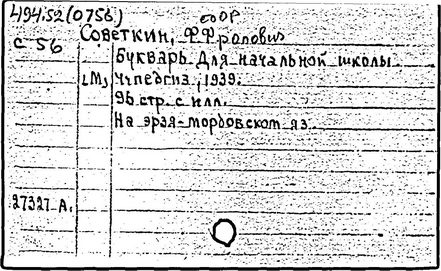 494.52(075б)
СССР
С 56
Советкин, Ф.Фролович
Букварь для начальной школы
[М] Учпедгиз, 1939.
96 стр. с илл.
На эрзя-мордовском яз.
27327 А.